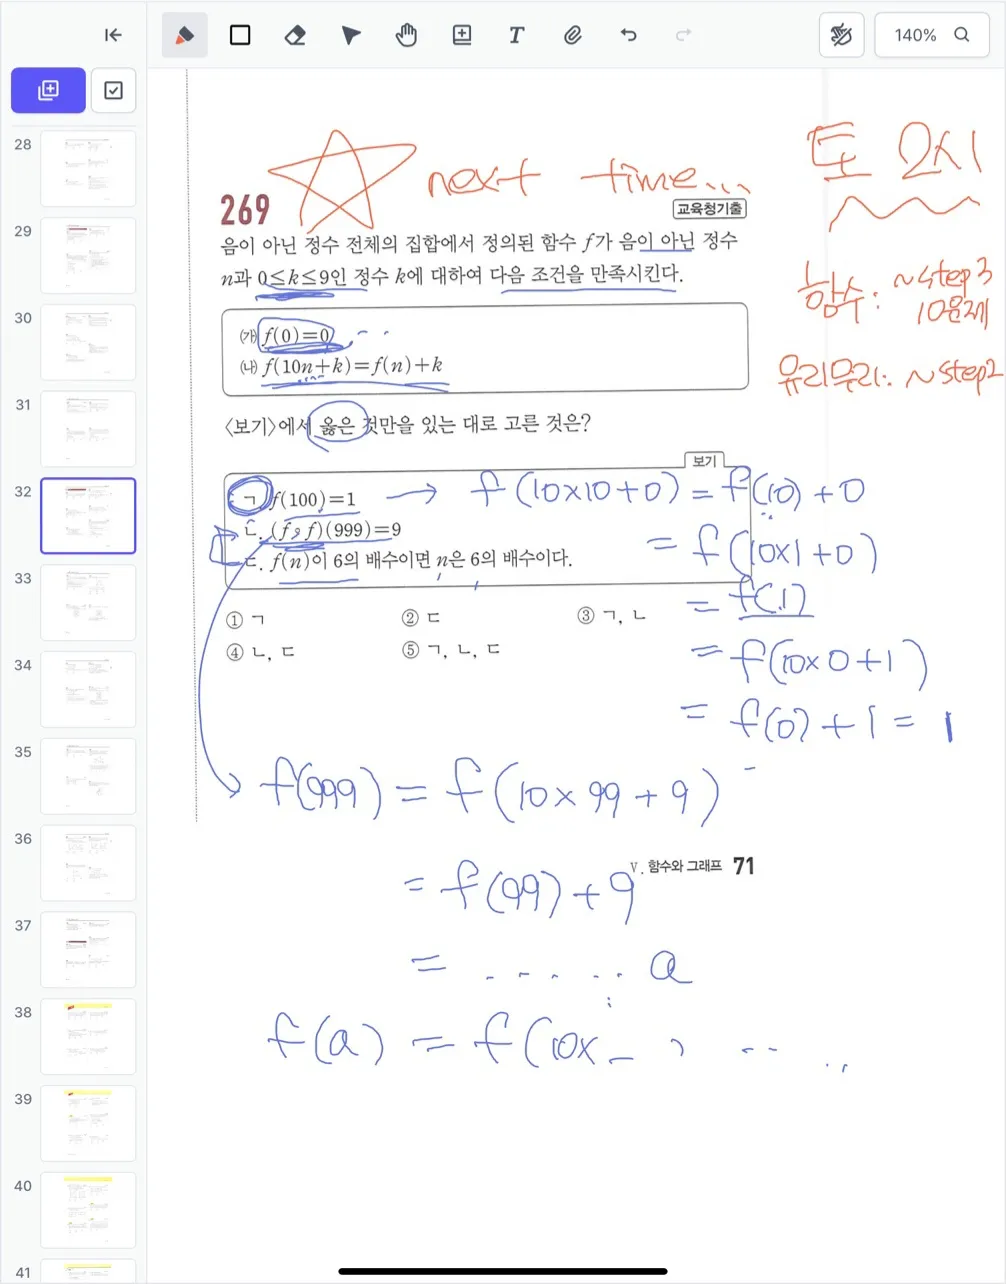 140%
28
29
30
31
32
33
34
35
36
37
38
39
40
41
next time...
토 2시
함수: ~step3
10문제
유리무리: ~step2
269
교육청기출
음이 아닌 정수 전체의 집합에서 정의된 함수 f가 음이 아닌 정수
n과 0≤k≤9인 정수 k에 대하여 다음 조건을 만족시킨다.
㈎ f(0)=0
㈏ f(10n+k)=f(n)+k
〈보기〉에서 옳은 것만을 있는 대로 고른 것은?
보기
ㄱ. f(100)=1
ㄴ. (f∘f)(999)=9
ㄷ. f(n)이 6의 배수이면 n은 6의 배수이다.
① ㄱ ② ㄷ ③ ㄱ, ㄴ
④ ㄴ, ㄷ ⑤ ㄱ, ㄴ, ㄷ
→ f(10×10+0) = f(10)+0
= f(10×1+0)
= f(1)
= f(10×0+1)
= f(0)+1 = 1
f(999) = f(10×99+9)
= f(99)+9
= ...... a
f(a) = f(10×
V. 함수와 그래프 71